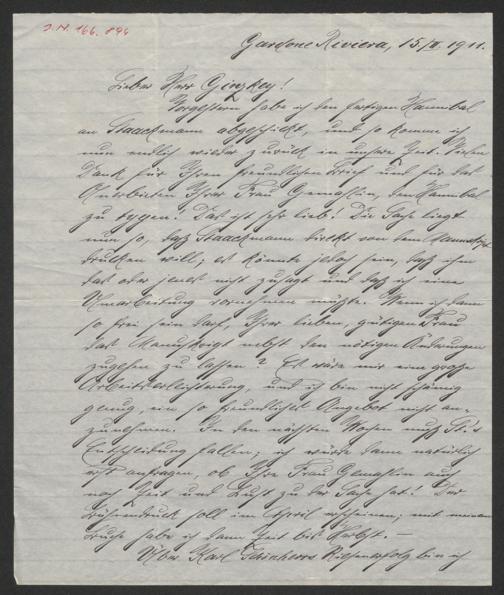 J.N. 166.894
Gardone Riviera, 15./II. 1911.
Lieber Herr Ginzkey!
Vorgestern habe ich den fertigen Hannibal
an Staackmann abgeschickt, und so komme ich
nun endlich wieder zurück in unsere Zeit. Vielen
Dank für Ihren freundlichen Brief und für das
Anerbieten Ihrer Frau Gemahlin, den Hannibal
zu tippen! Das ist sehr lieb! Die Sache liegt
nun so, daß Staackmann direkt von dem Manuskript
drucken will; es könnte jedoch sein, daß ihm
das oder jenes nicht zusagt und daß ich eine
Umarbeitung vornehmen müßte. Wenn ich dann
so frei sein darf, Ihrer lieben, gütigen Frau
das Manuskript nebst den nötigen Änderungen
zugehen zu lassen? Es wäre mir eine große
Arbeitserleichterung, und ich bin nicht
genug, ein so freundliches Angebot nicht an-
zunehmen. In den nächsten Wochen muß St.'s
Entscheidung fallen; ich würde dann natürlich
erst anfragen, ob Ihre Frau Gemahlin auch
noch Zeit und Lust zu der Sache hat! Der
Bühnendruck soll im April erscheinen; mit meinem
Buche habe ich dann Zeit bis Herbst. —
Über Karl Schönherrs Riesenerfolg bin ich